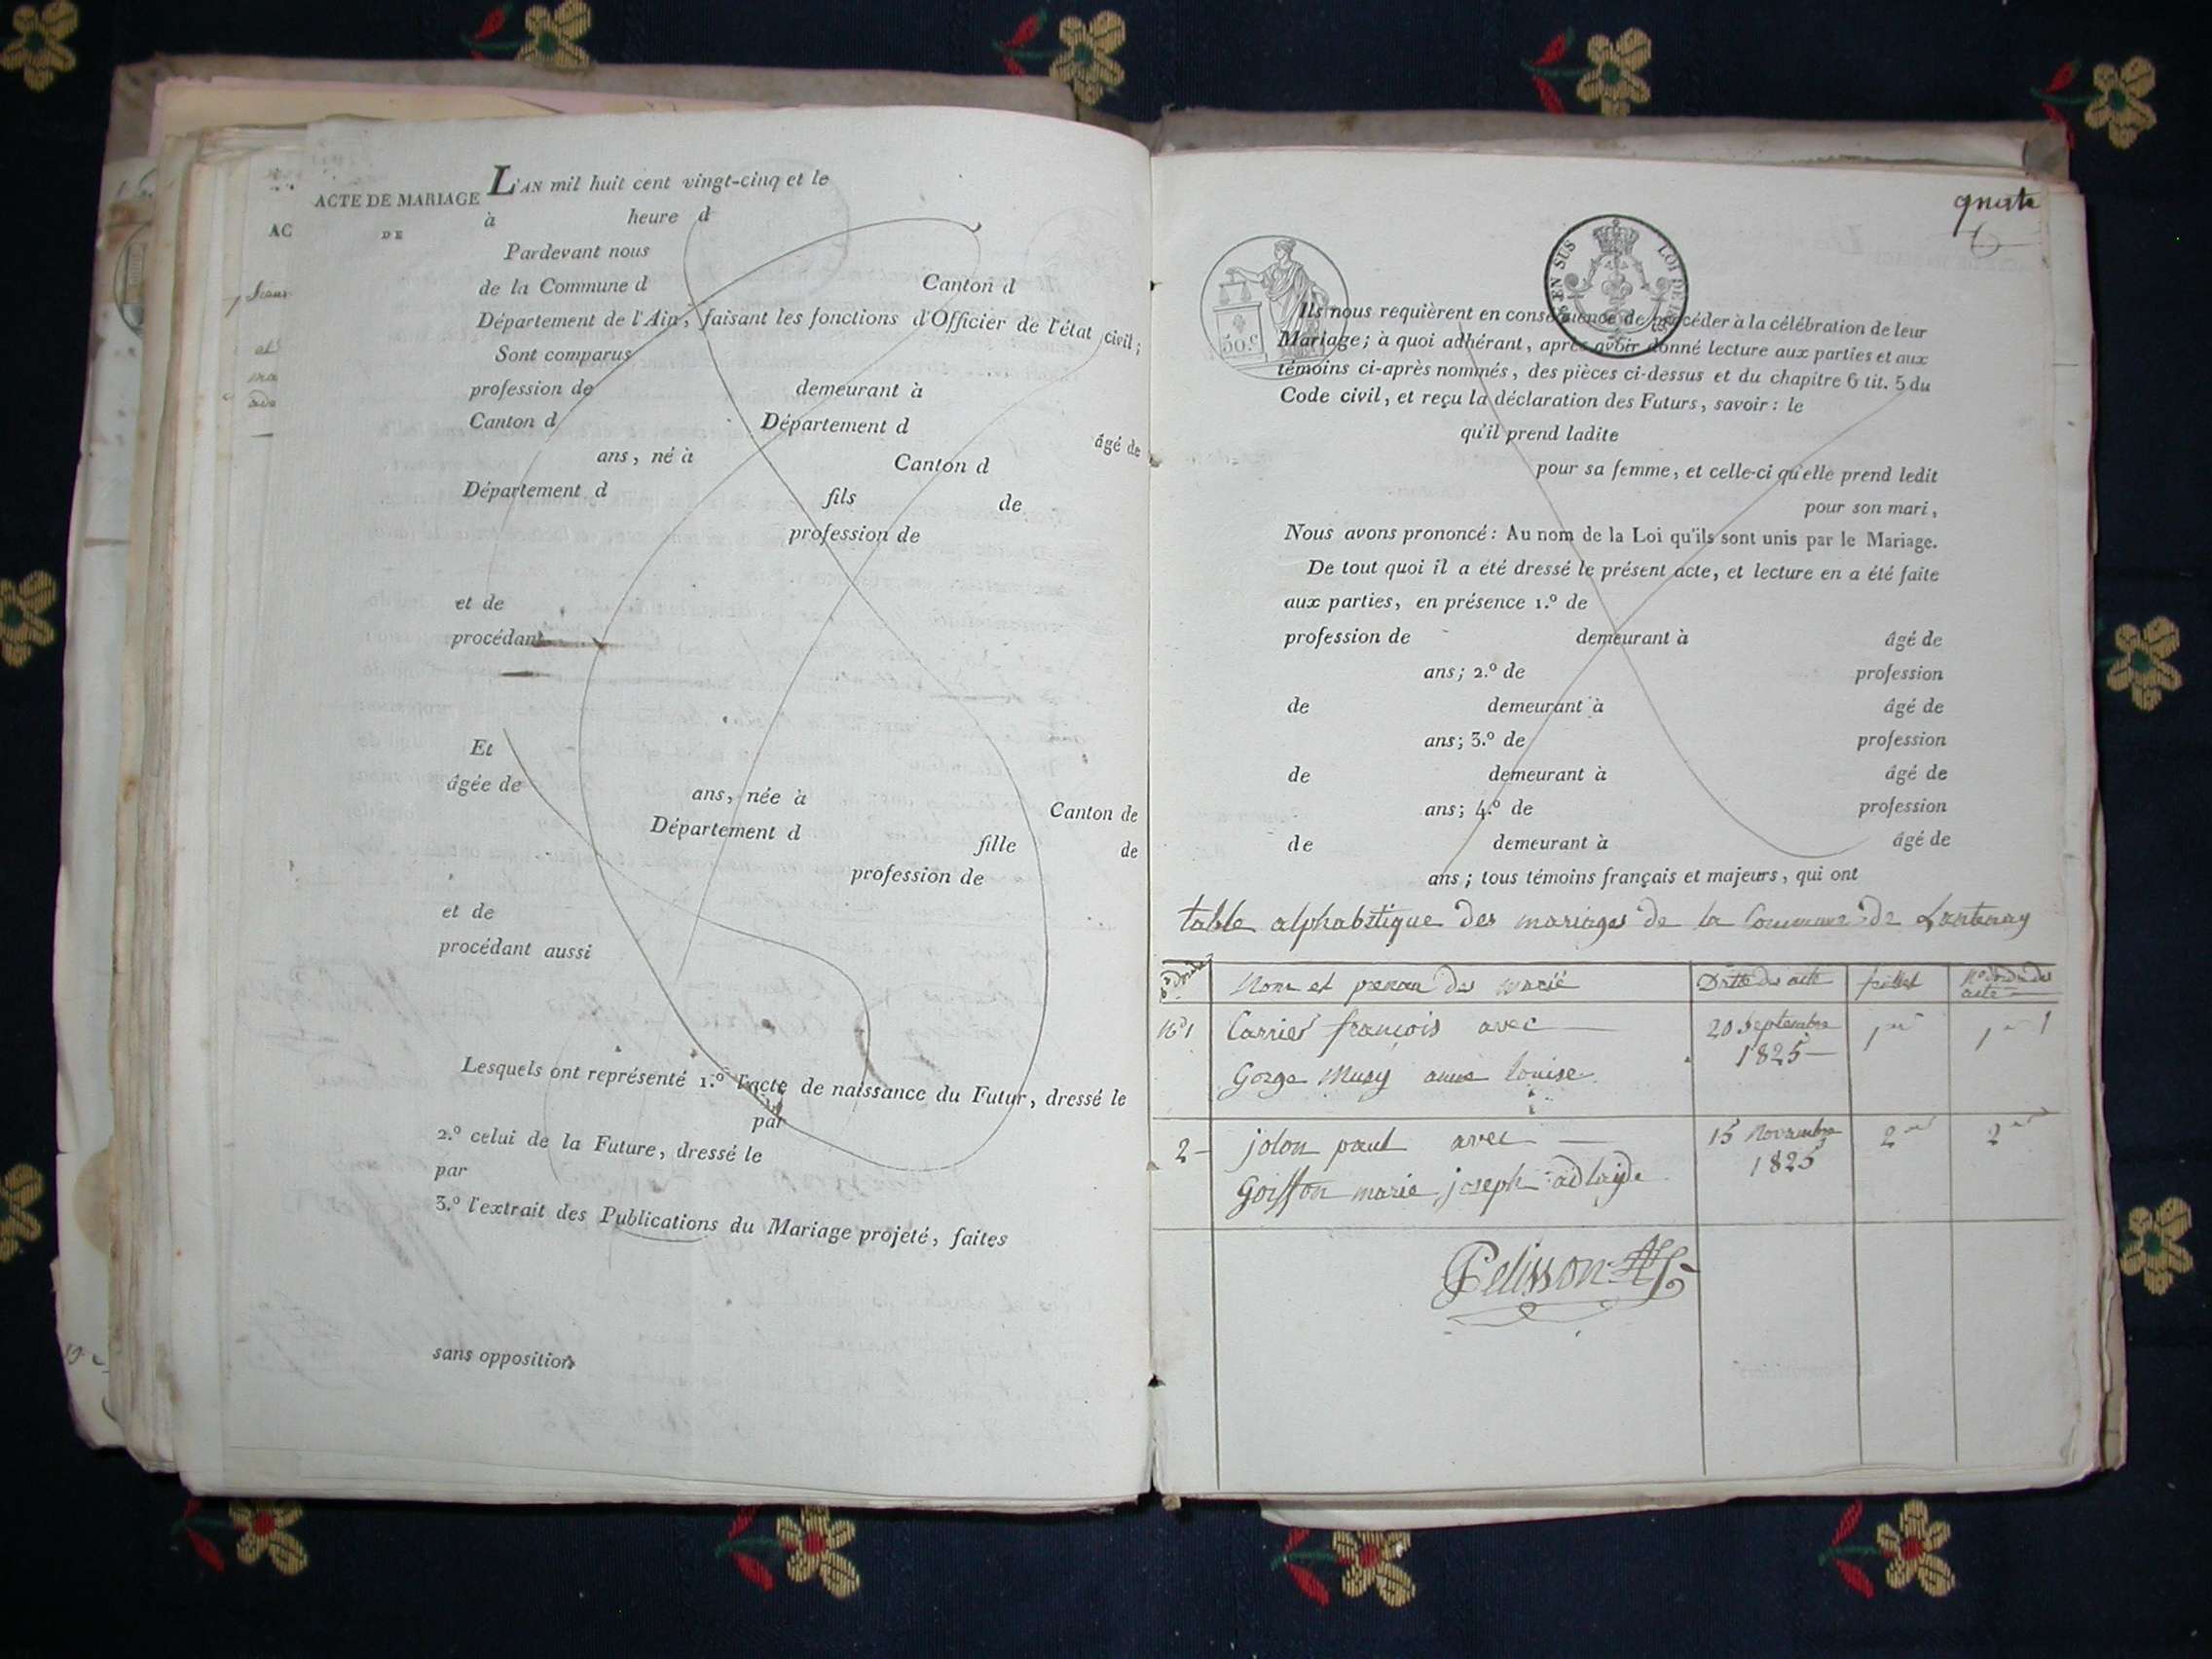 ACTE DE MARIAGE
AC
DE
L'AN mil huit cent vingt-cinq et le
à heure d
Pardevant nous
de la Commune d Canton d
Département de l'Ain, faisant les fonctions d'Officier de l'état civil;
Sont comparus
profession de demeurant à
Canton d Département d âgé de
ans, né à Canton d
Département d fils de
profession de
et de
procédant
Et
âgée de ans, née à Canton de
Département d fille de
profession de
et de
procédant aussi
Lesquels ont représenté 1.º l'acte de naissance du Futur, dressé le
par
2.º celui de la Future, dressé le
par
3.º l'extrait des Publications du Mariage projeté, faites
sans opposition
EN SUS LOI DE
50.c
Ils nous requièrent en conséquence de procéder à la célébration de leur
Mariage; à quoi adhérant, après avoir donné lecture aux parties et aux
témoins ci-après nommés, des pièces ci-dessus et du chapitre 6 tit. 5 du
Code civil, et reçu la déclaration des Futurs, savoir: le
qu'il prend ladite
pour sa femme, et celle-ci qu'elle prend ledit
pour son mari,
Nous avons prononcé: Au nom de la Loi qu'ils sont unis par le Mariage.
De tout quoi il a été dressé le présent acte, et lecture en a été faite
aux parties, en présence 1.º de
profession de demeurant à âgé de
ans; 2.º de profession
de demeurant à âgé de
ans; 3.º de profession
de demeurant à âgé de
ans; 4.º de profession
de demeurant à âgé de
ans; tous témoins français et majeurs, qui ont
table alphabetique des mariages de la Commune de Lantenay
Nom et prenom des marié Datte des acte feuillet
Nº 1 Carrier francois avec 20 Septembre 1er 1er 1
1825
Gorge Musy anne louise
2 jolon paul avec 15 Novembre 2 2
1825
Goiffon marie joseph adlayde
Pelisson